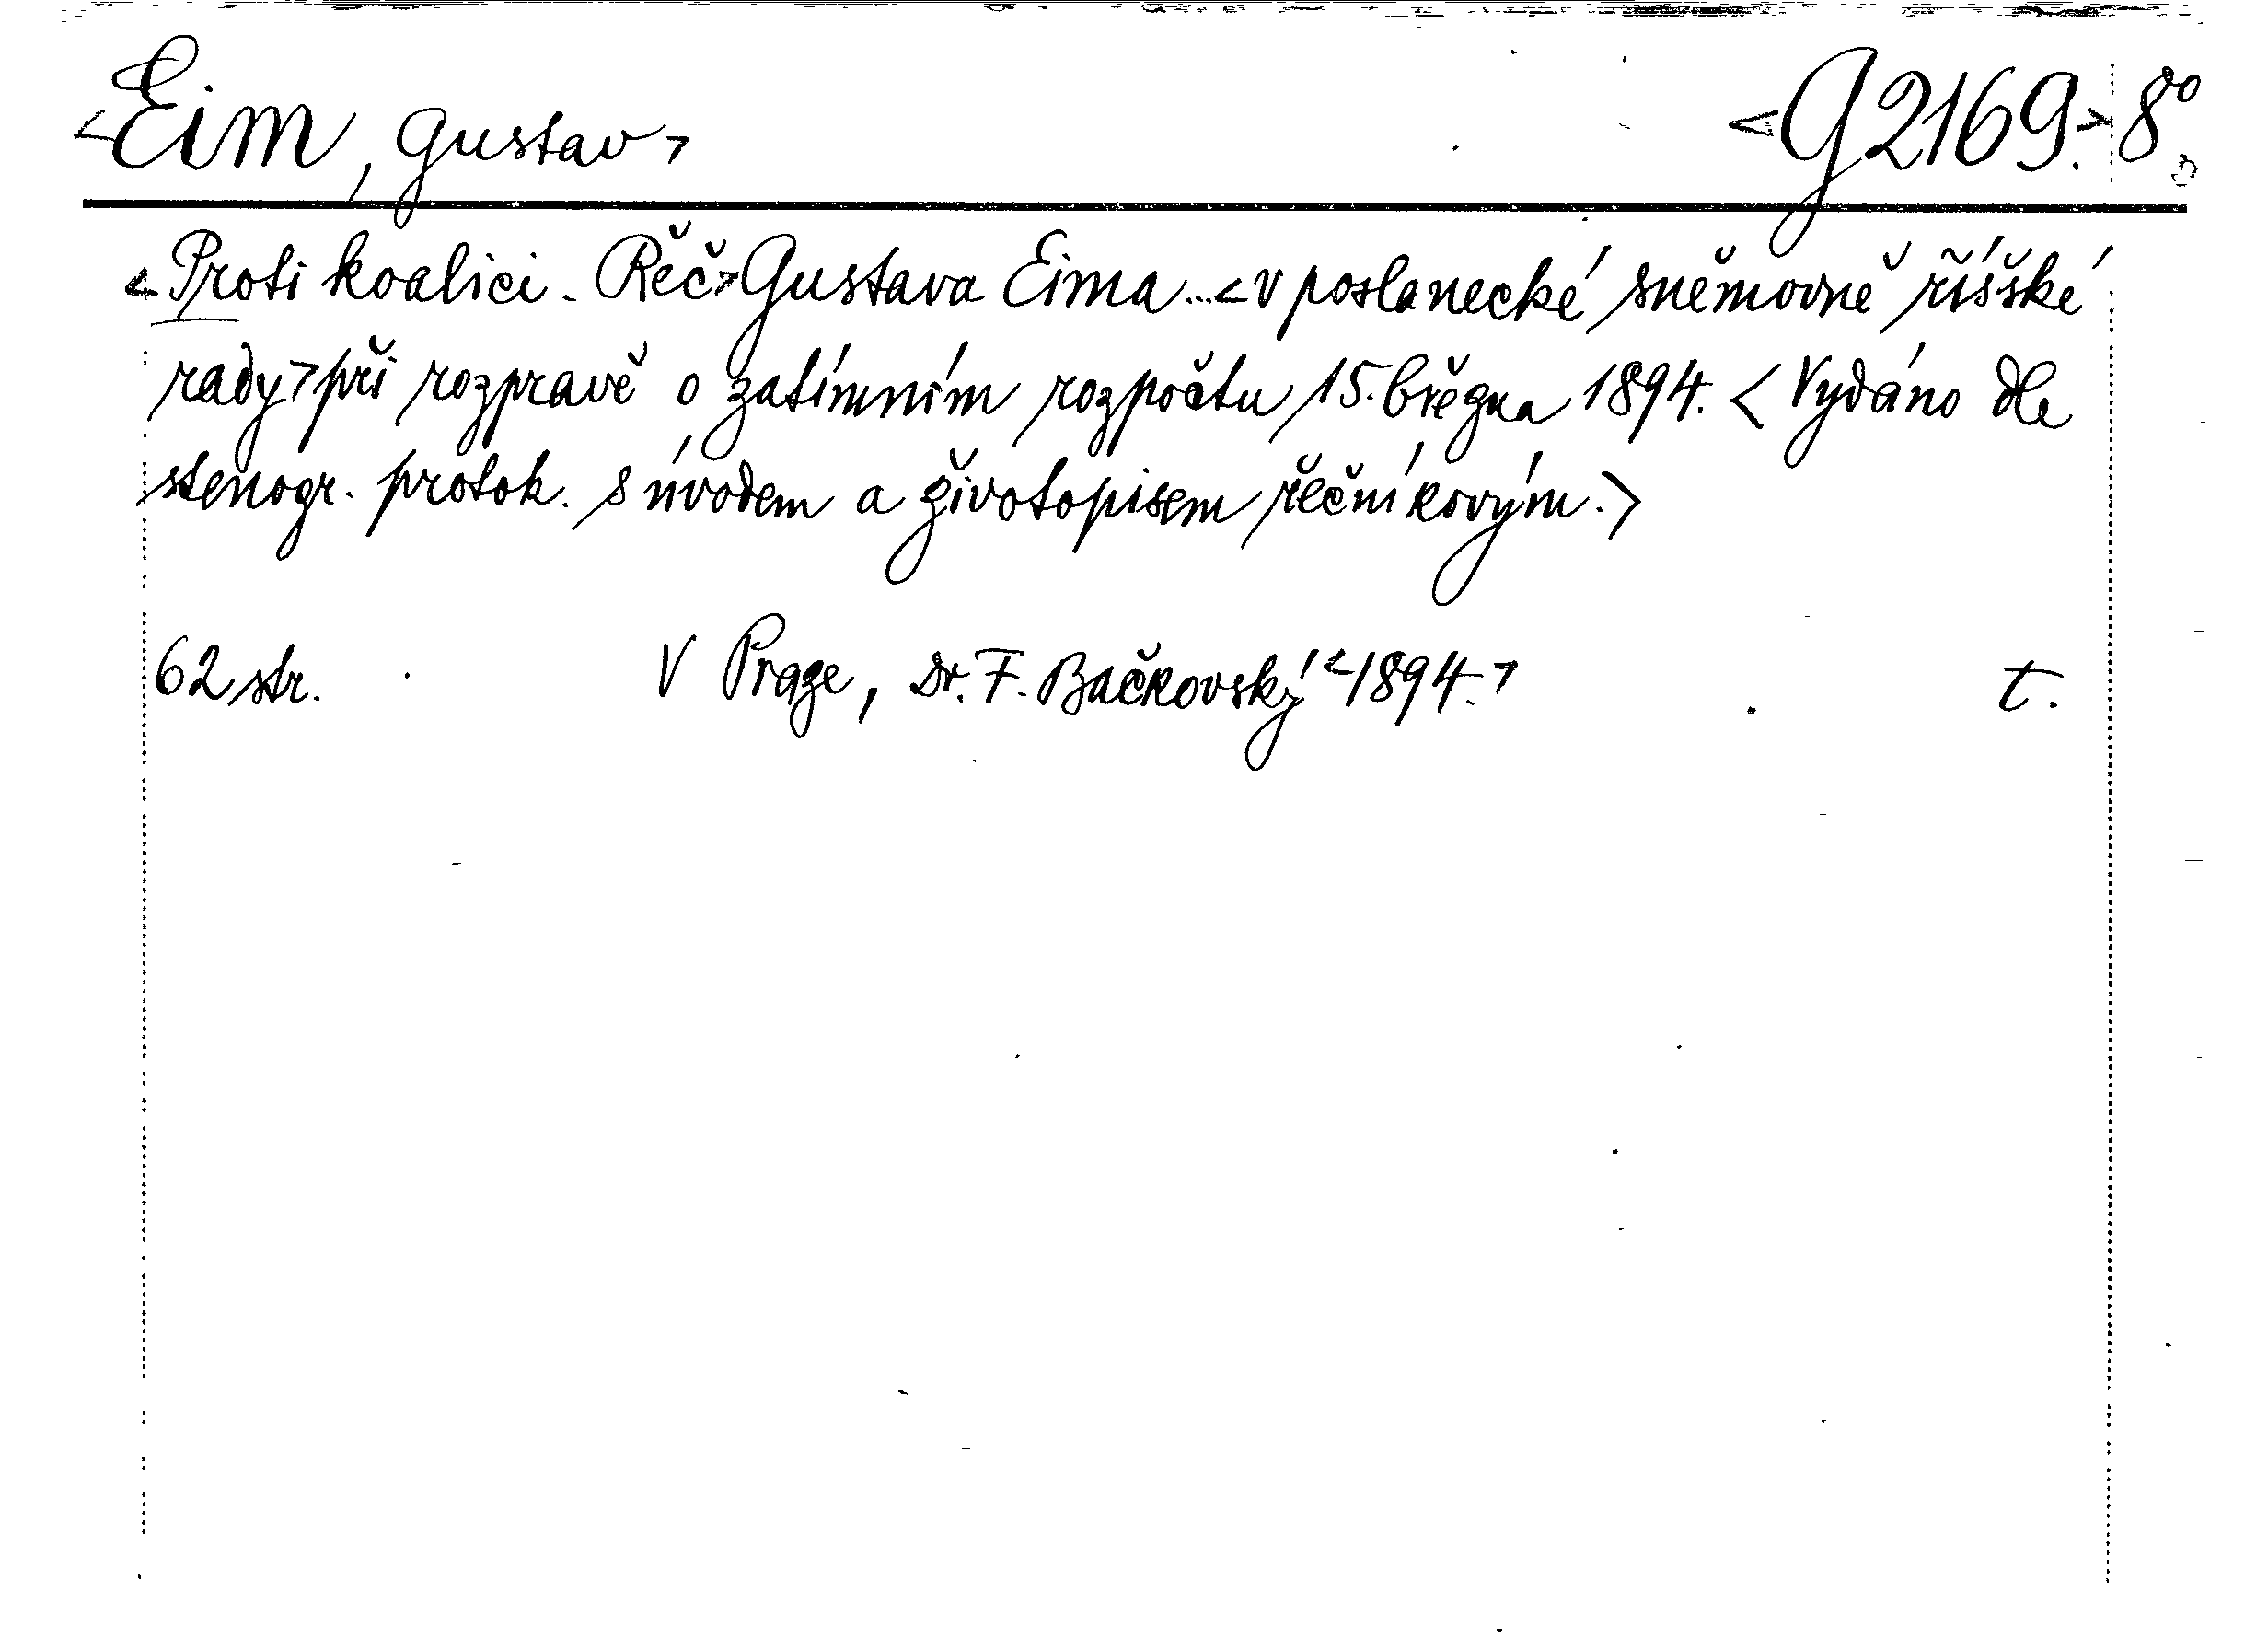 <Eim, Gustav> <G2169.> 8°
<Proti koalici. Řeč> Gustava Eima...<v poslanecké sněmovně říšské
rady> při rozpravě o zatímním rozpočtu 15. března 1894. <Vydáno dle
stenogr. protok. s úvodem a životopisem řečníkovým.>
62 str. V Praze, Dr. F. Bačkovský <1894.> t.